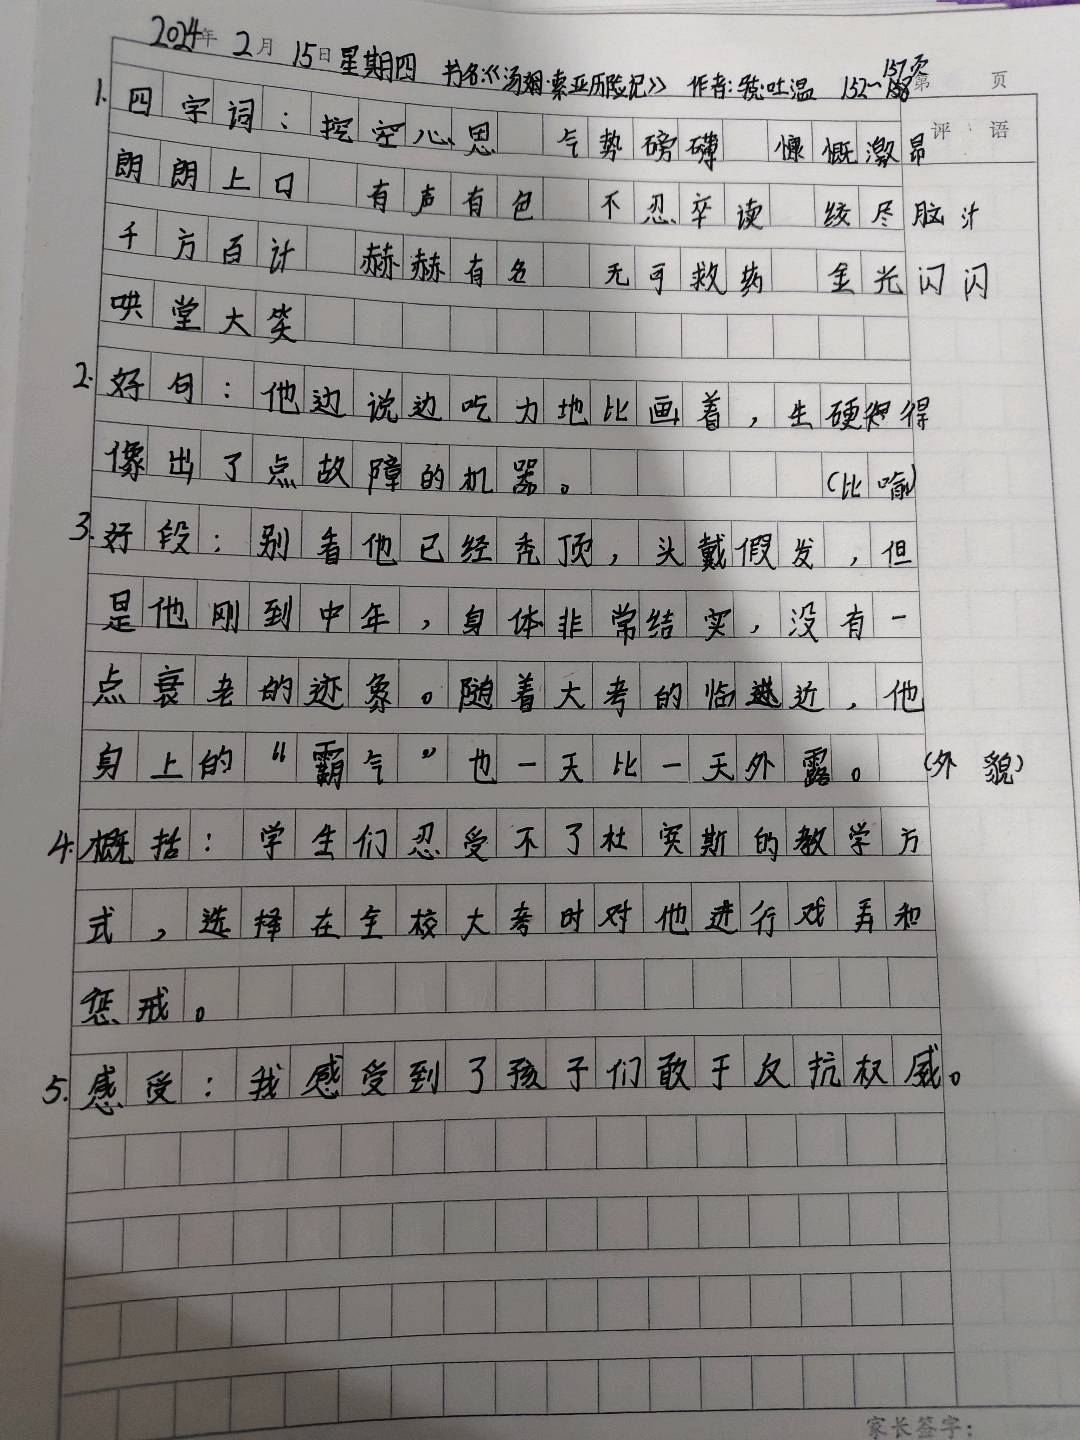 2024年2月15日星期四 书名:《汤姆·索亚历险记》 作者: 吐温 152~157页 第 页
评 语
1. 四字词:挖空心思 气势磅礴 慷慨激昂
朗朗上口 有声有色 不忍卒读 绞尽脑汁
千方百计 赫赫有名 无可救药 金光闪闪
哄堂大笑
2. 好句:他边说边吃力地比画着,生硬得
像出了点故障的机器。 (比喻)
3. 好段:别看他已经秃顶,头戴假发,但
是他刚到中年,身体非常结实,没有一
点衰老的迹象。随着大考的临近,他
身上的“霸气”也一天比一天外露。 (外貌)
4. 概括:学生们忍受不了杜宾斯的教学方
式,选择在全校大考时对他进行戏弄和
惩戒。
5. 感受:我感受到了孩子们敢于反抗权威。
家长签字: